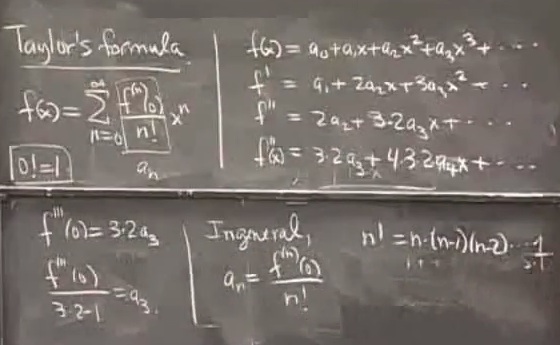 Taylor's formula
f(x) = ∑_{n=0}^{∞} f^{(n)}(0)/n! x^n
a_n
0! = 1
f(x) = a₀ + a₁x + a₂x² + a₃x³ + ····
f' = a₁ + 2a₂x + 3a₃x² + ···
f'' = 2a₂ + 3·2a₃x + ····
f'''(x) = 3·2a₃ + 4·3·2a₄x + ····
f'''(0) = 3·2a₃
f'''(0)/3·2·1 = a₃.
In general,
a_n = f^{(n)}(0)/n!
n! = n·(n-1)(n-2)····1